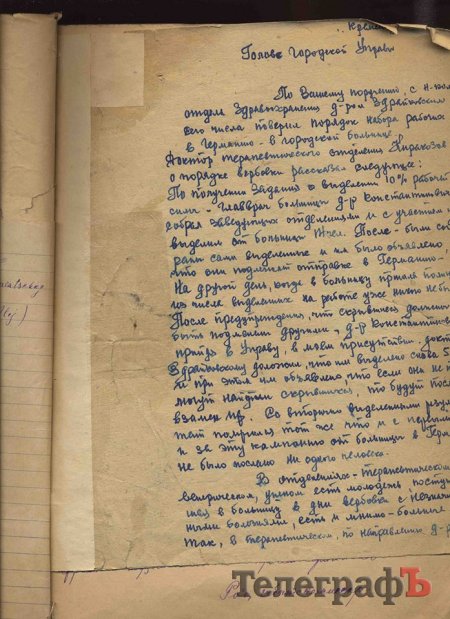 г. Кремен
Голове Городской Управы
По Вашему поручению, с н-ком
отдела Здравохранения д-ром Здрайковским
сего числа поверил порядок набора рабочих
в Германию - в городской больнице.
Доктор терапевтического отделения
о порядке вербовки рассказал следующее:
По получении задания о выделении 10% рабочей
силы - главврач больницы д-р Константинович
собрал заведующих отделениями и с участием
выделил от больницы чел. После - были соб
раны сами выделенные и им было объявлено
что они подлежат отправке в Германию.
На другой день, когда в больницу пришла полиц
из числа выделенных на работе уже никто не бы
После предупреждения, что скрывшиеся должны
быть подменены другими, д-р Константинов
придя в Управу, в моем присутствии, докт
Здрайковскому доложил, что им выделено снова 5
и при этом им объявлено, что если они не п
могут найти скрывшихся, то будут посл
взамен их. Со вторично выделенными резул
тат получился тот же что и с первыми
и за эту кампанию от больницы в Герм
не было послано ни одного человека.
В отделениях - терапевтическом
венерическом, ушном есть молодежь посту
шая в больницу в дни вербовки с незначи
ными болезнями, есть и мнимо-больные
Так, в терапевтическом, по направлению д-р
ТелеграфЪ